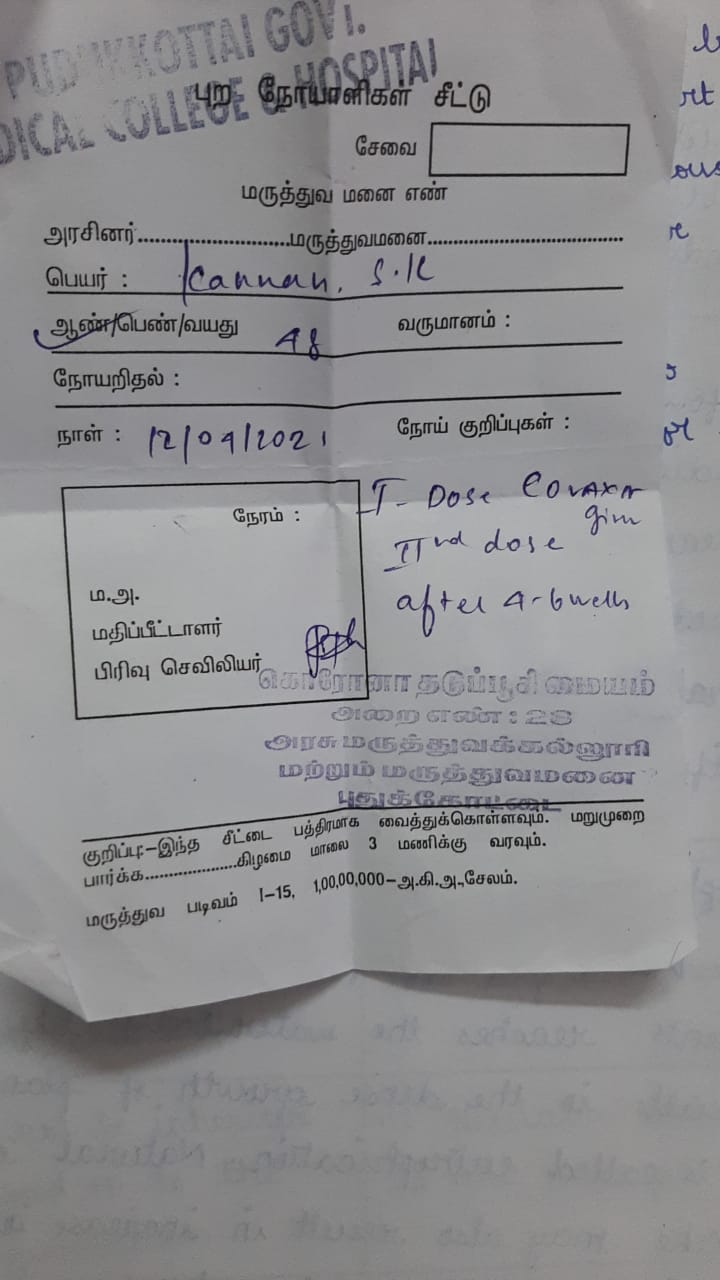 PUDUKKOTTAI GOVT.
DICAL COLLEGE & HOSPITAL
புற நோயாளிகள் சீட்டு
சேவை
மருத்துவ மனை எண்
அரசினர்........................மருத்துவமனை..............................
பெயர் : Kannan. S.K
ஆண்/பெண்/வயது 48 வருமானம் :
நோயறிதல் :
நாள் : 12/04/2021 நோய் குறிப்புகள் :
நேரம் :
ம.அ.
மதிப்பீட்டாளர்
பிரிவு செவிலியர்
I - Dose COVAXIN
given
IInd dose
after 4-6 weeks
கொரோனா தடுப்பூசி மையம்
அறை எண் : 28
அரசு மருத்துவக்கல்லூரி
மற்றும் மருத்துவமனை
புதுக்கோட்டை
குறிப்பு:-இந்த சீட்டை பத்திரமாக வைத்துக்கொள்ளவும். மறுமுறை
பார்க்க....................கிழமை மாலை 3 மணிக்கு வரவும்.
மருத்துவ படிவம் I-15, 1,00,00,000-அ.கி.அ.,சேலம்.